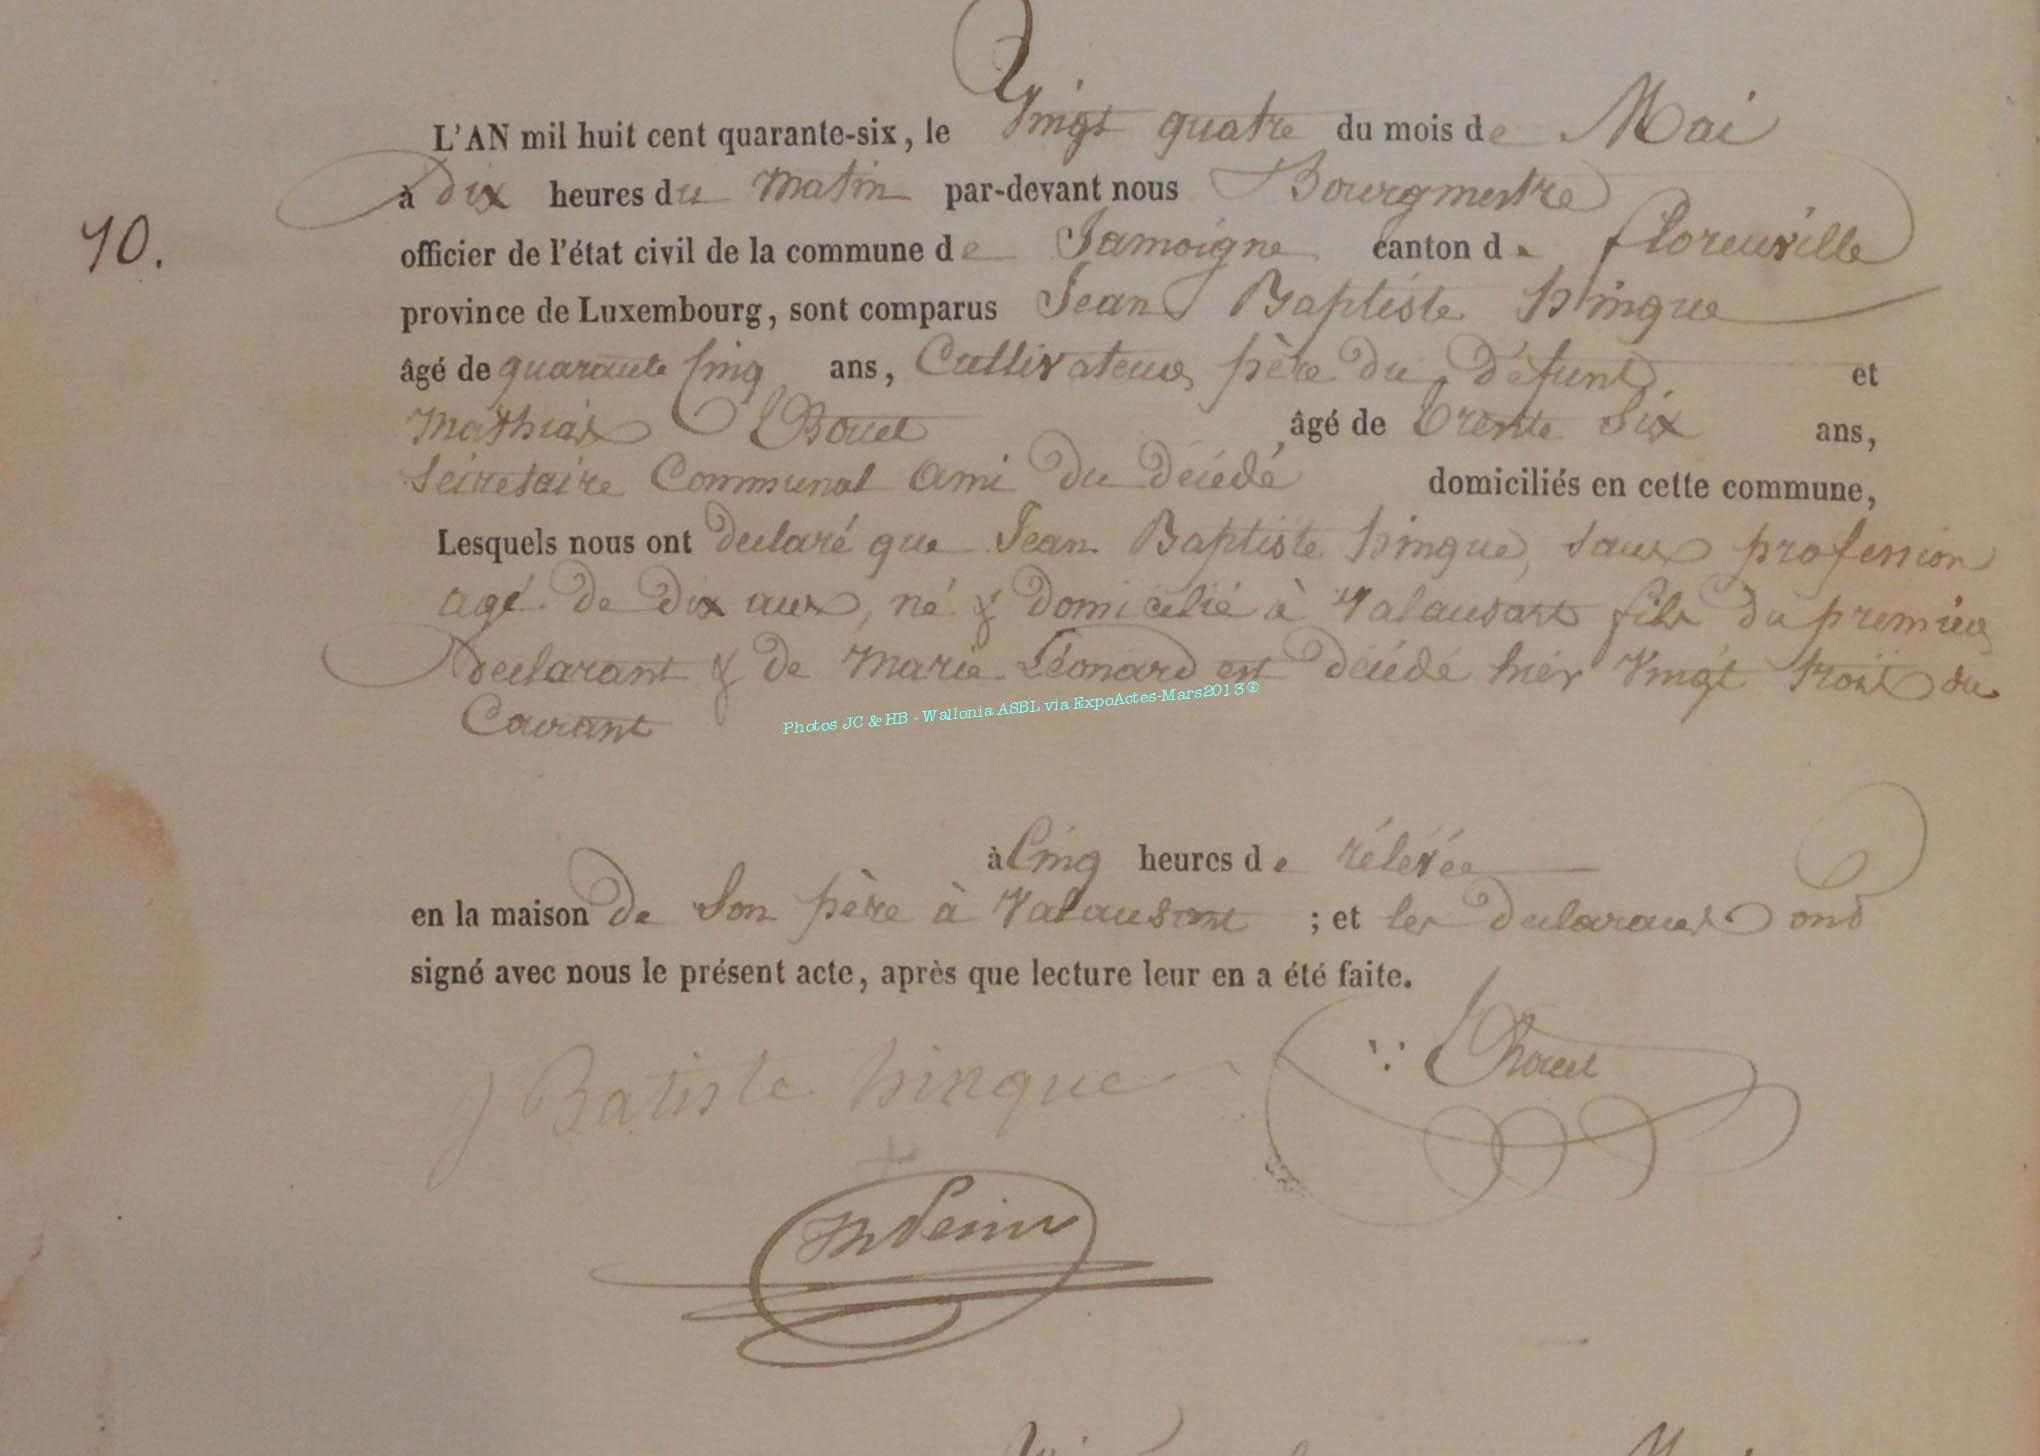 L'AN mil huit cent quarante-six, le Vingt quatre du mois de Mai
à dix heures du Matin par-devant nous Bourgmestre
10.
officier de l'état civil de la commune de Jamoigne canton de florenville
province de Luxembourg, sont comparus Jean Baptiste hingue
âgé de quarante Cinq ans, Cultivateur, père du défunt, et
Mathias Bouel âgé de trente Six ans,
Sécretaire Communal ami du décédé domiciliés en cette commune,
Lesquels nous ont declaré que Jean Baptiste hingue, sans profession
agé de dix ans, né & domicilié à Valansart fils du premier
declarant & de Marie Léonard est décédé hier Vingt trois du
Courant
Photos JC & HB - Wallonia ASBL via ExpoActes-Mars2013®
à Cinq heures de rélevée
en la maison de Son père à Valansart ; et les declarants ont
signé avec nous le présent acte, après que lecture leur en a été faite.
J Batiste hingue Bouel